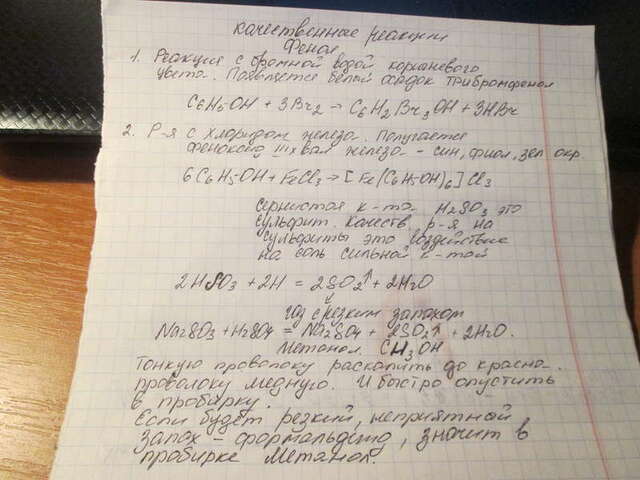 Качественные реакции
Фенол
1. Реакция с бромной водой коричневого
цвета. Появляется белый осадок трибромфенол
C6H5OH + 3Br2 → C6H2Br3OH + 3HBr
2. Р-я с хлоридом железа. Получается
фенолят IIIх вал железа - син, фиол, зел окр
6C6H5OH + FeCl3 → [Fe(C6H5OH)6]Cl3
Сернистая к-та - H2SO3 это
сульфит. Качеств. р-я на
сульфиты это воздействие
на соль сильной к-той
2HSO3 + 2H = 2SO2↑ + 2H2O
газ с резким запахом
Na2SO3 + H2SO4 = Na2SO4 + 2SO2↑ + 2H2O.
Метанол. CH3OH
Тонкую проволоку раскалить до красна.
проволоку медную. И быстро опустить
в пробирку.
Если будет резкий, неприятный
запах - формальдегид, значит в
пробирке метанол.